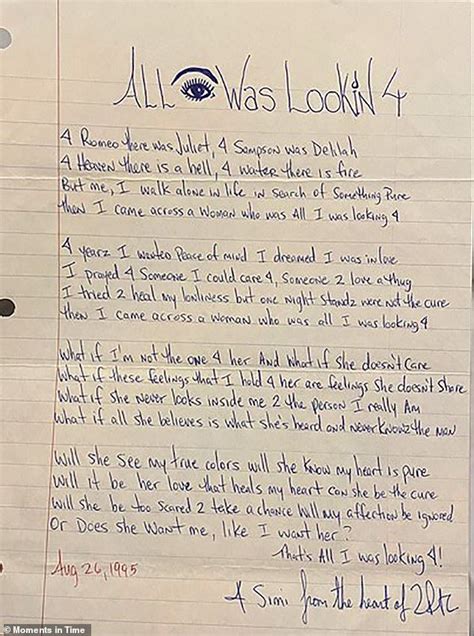 ALL 👁 Was Lookin 4
4 Romeo there was Juliet, 4 Sampson was Delilah
4 Heaven there is a hell, 4 water there is fire
But me, I walk alone in life in search of Something Pure
then I came across a woman who was All I was looking 4
4 yearz I wanted Peace of mind I dreamed I was in love
I prayed 4 Someone I could care 4, Someone 2 love a thug
I tried 2 heal my lonliness but one night standz were not the cure
then I came across a woman who was all I was looking 4
What if I'm not the one 4 her And What if She doesn't Care
What if these feelings that I hold 4 her are feelings She doesn't Share
What if She Never looks inside me 2 the person I really Am
What if all she believes is what she's heard and never knowz the man
Will she See my true colors will she know my heart is pure
Will it be her love that heals my heart can she be the cure
Will she be too Scared 2 take a chance will my affection be ignored
Or Does She Want me, like I want her?
That's All I was looking 4!
Aug 26, 1995
4 Simi from the heart of 2Pac
© Moments in Time